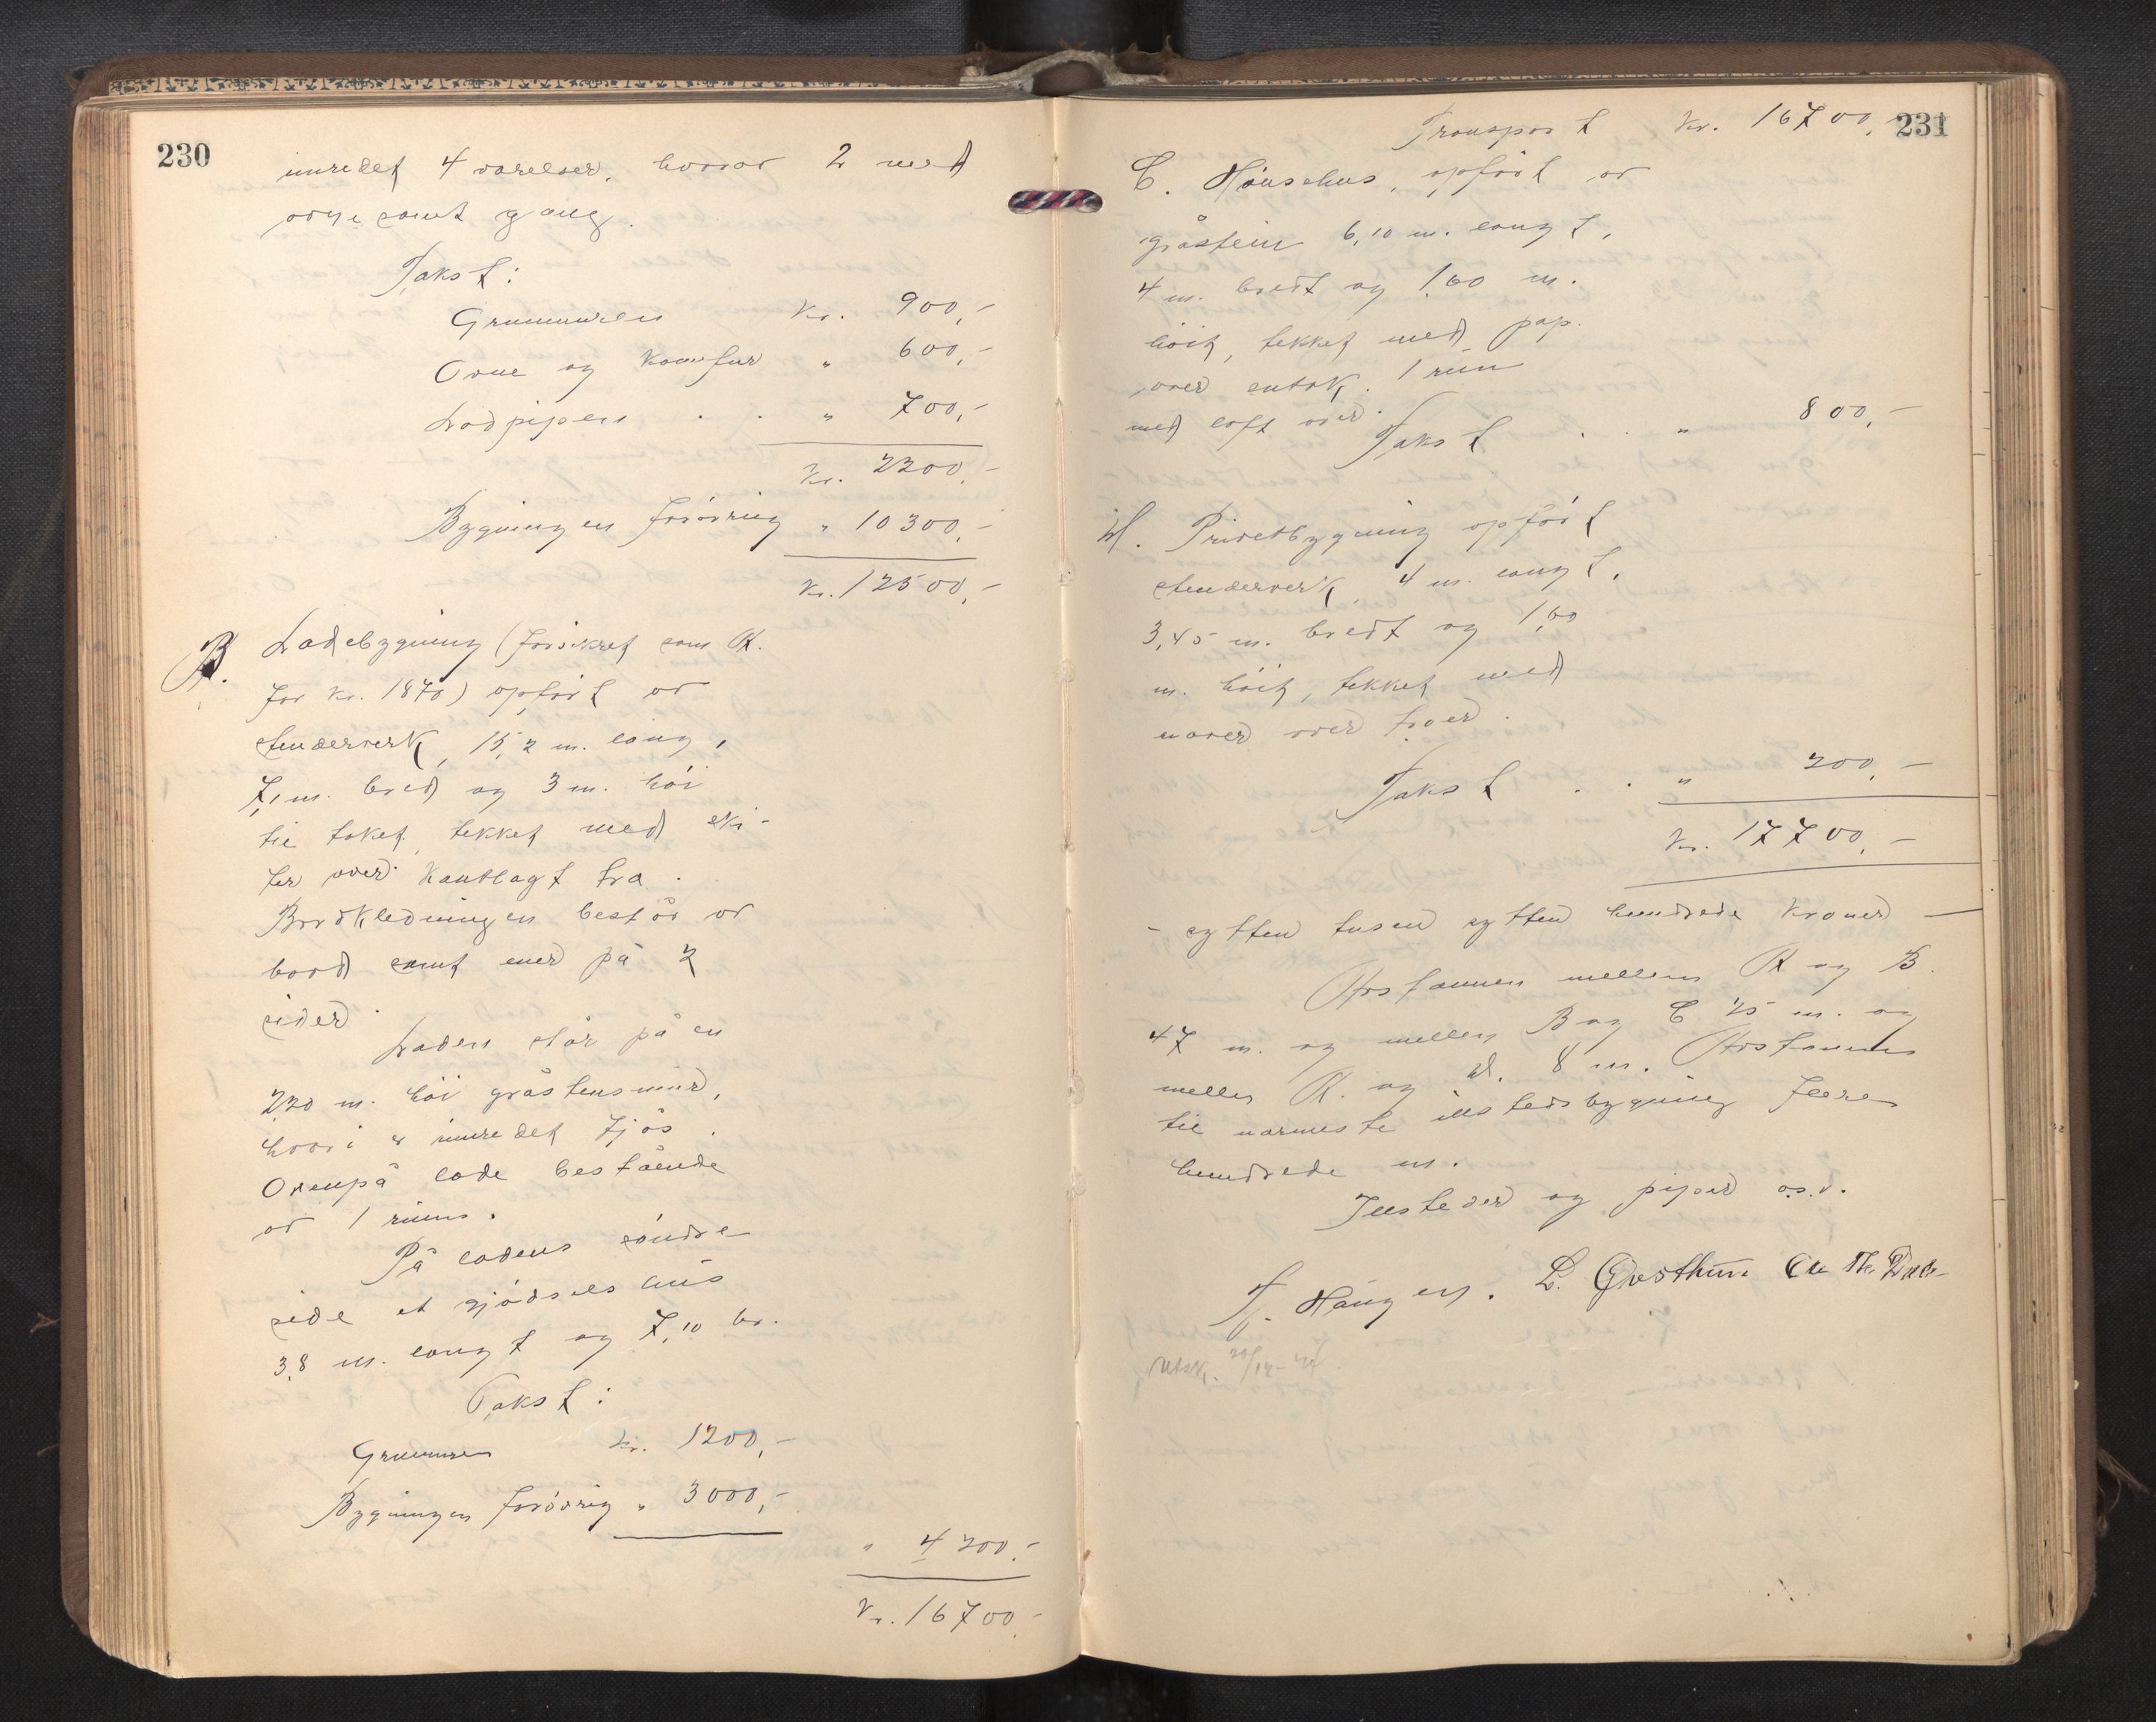 230
innredet 4 værelser, hvorav 2 med
ovn samt gang.
Takst:
Grunmuren Kr. 900,-
Ovne og Komfur " 600,-
Ladpipen . . " 700,-
Kr. 2200,-
Bygningen forøvrig " 10300,-
Kr. 12500,-
B. Ladebygning (forsikret som A.
for kr. 1870) opført av
stenderverk, 15,2 m. lang,
7,1 m. bred og 3 m. høi
til taket, tekket med ski-
fer over kantlagt tro.
Bordkledningen består av
bord samt ener på 2
sider.
Laden står på en
2,20 m. høi gråstensmur,
hvori er innredet fjøs.
Ovenpå lade bestående
av 1 rum.
På ladens søndre
side et gjødselshus
3,8 m. langt og 7,10 br.
Takst:
Grunmuren Kr. 1200,-
Bygningen forøvrig " 3000,-
" 4200,-
Kr. 16700,-
231
Transport Kr. 16700,-
C. Hønsehus, opført av
gråstein 6,10 m. langt,
4 m. bredt og 1,60 m.
høit, tekket med pap.
over sutak. 1 rum
med loft over.
Takst . . " 800,-
d. Privetbygning opført
stenderverk, 4 m. langt,
3,45 m. bredt og 1,60
m. høit, tekket med
naver over troer.
Takst . . " 200,-
Kr. 17700,-
- sytten tusen sytten hundrede kroner -
Avstannen mellem A og B.
47 m. og mellem B og C 25 m. og
mellem A. og d. 8 m. Avstannen
til nærmeste illstedsbygning flere
hundrede m.
Illsteder og piper o.s.v.
T. Haugen. L. Gjosthun
Utsk.